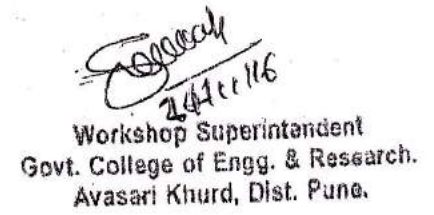 Workshop Superintendent
Govt. College of Engg. & Research.
Avasari Khurd, Dist. Pune.